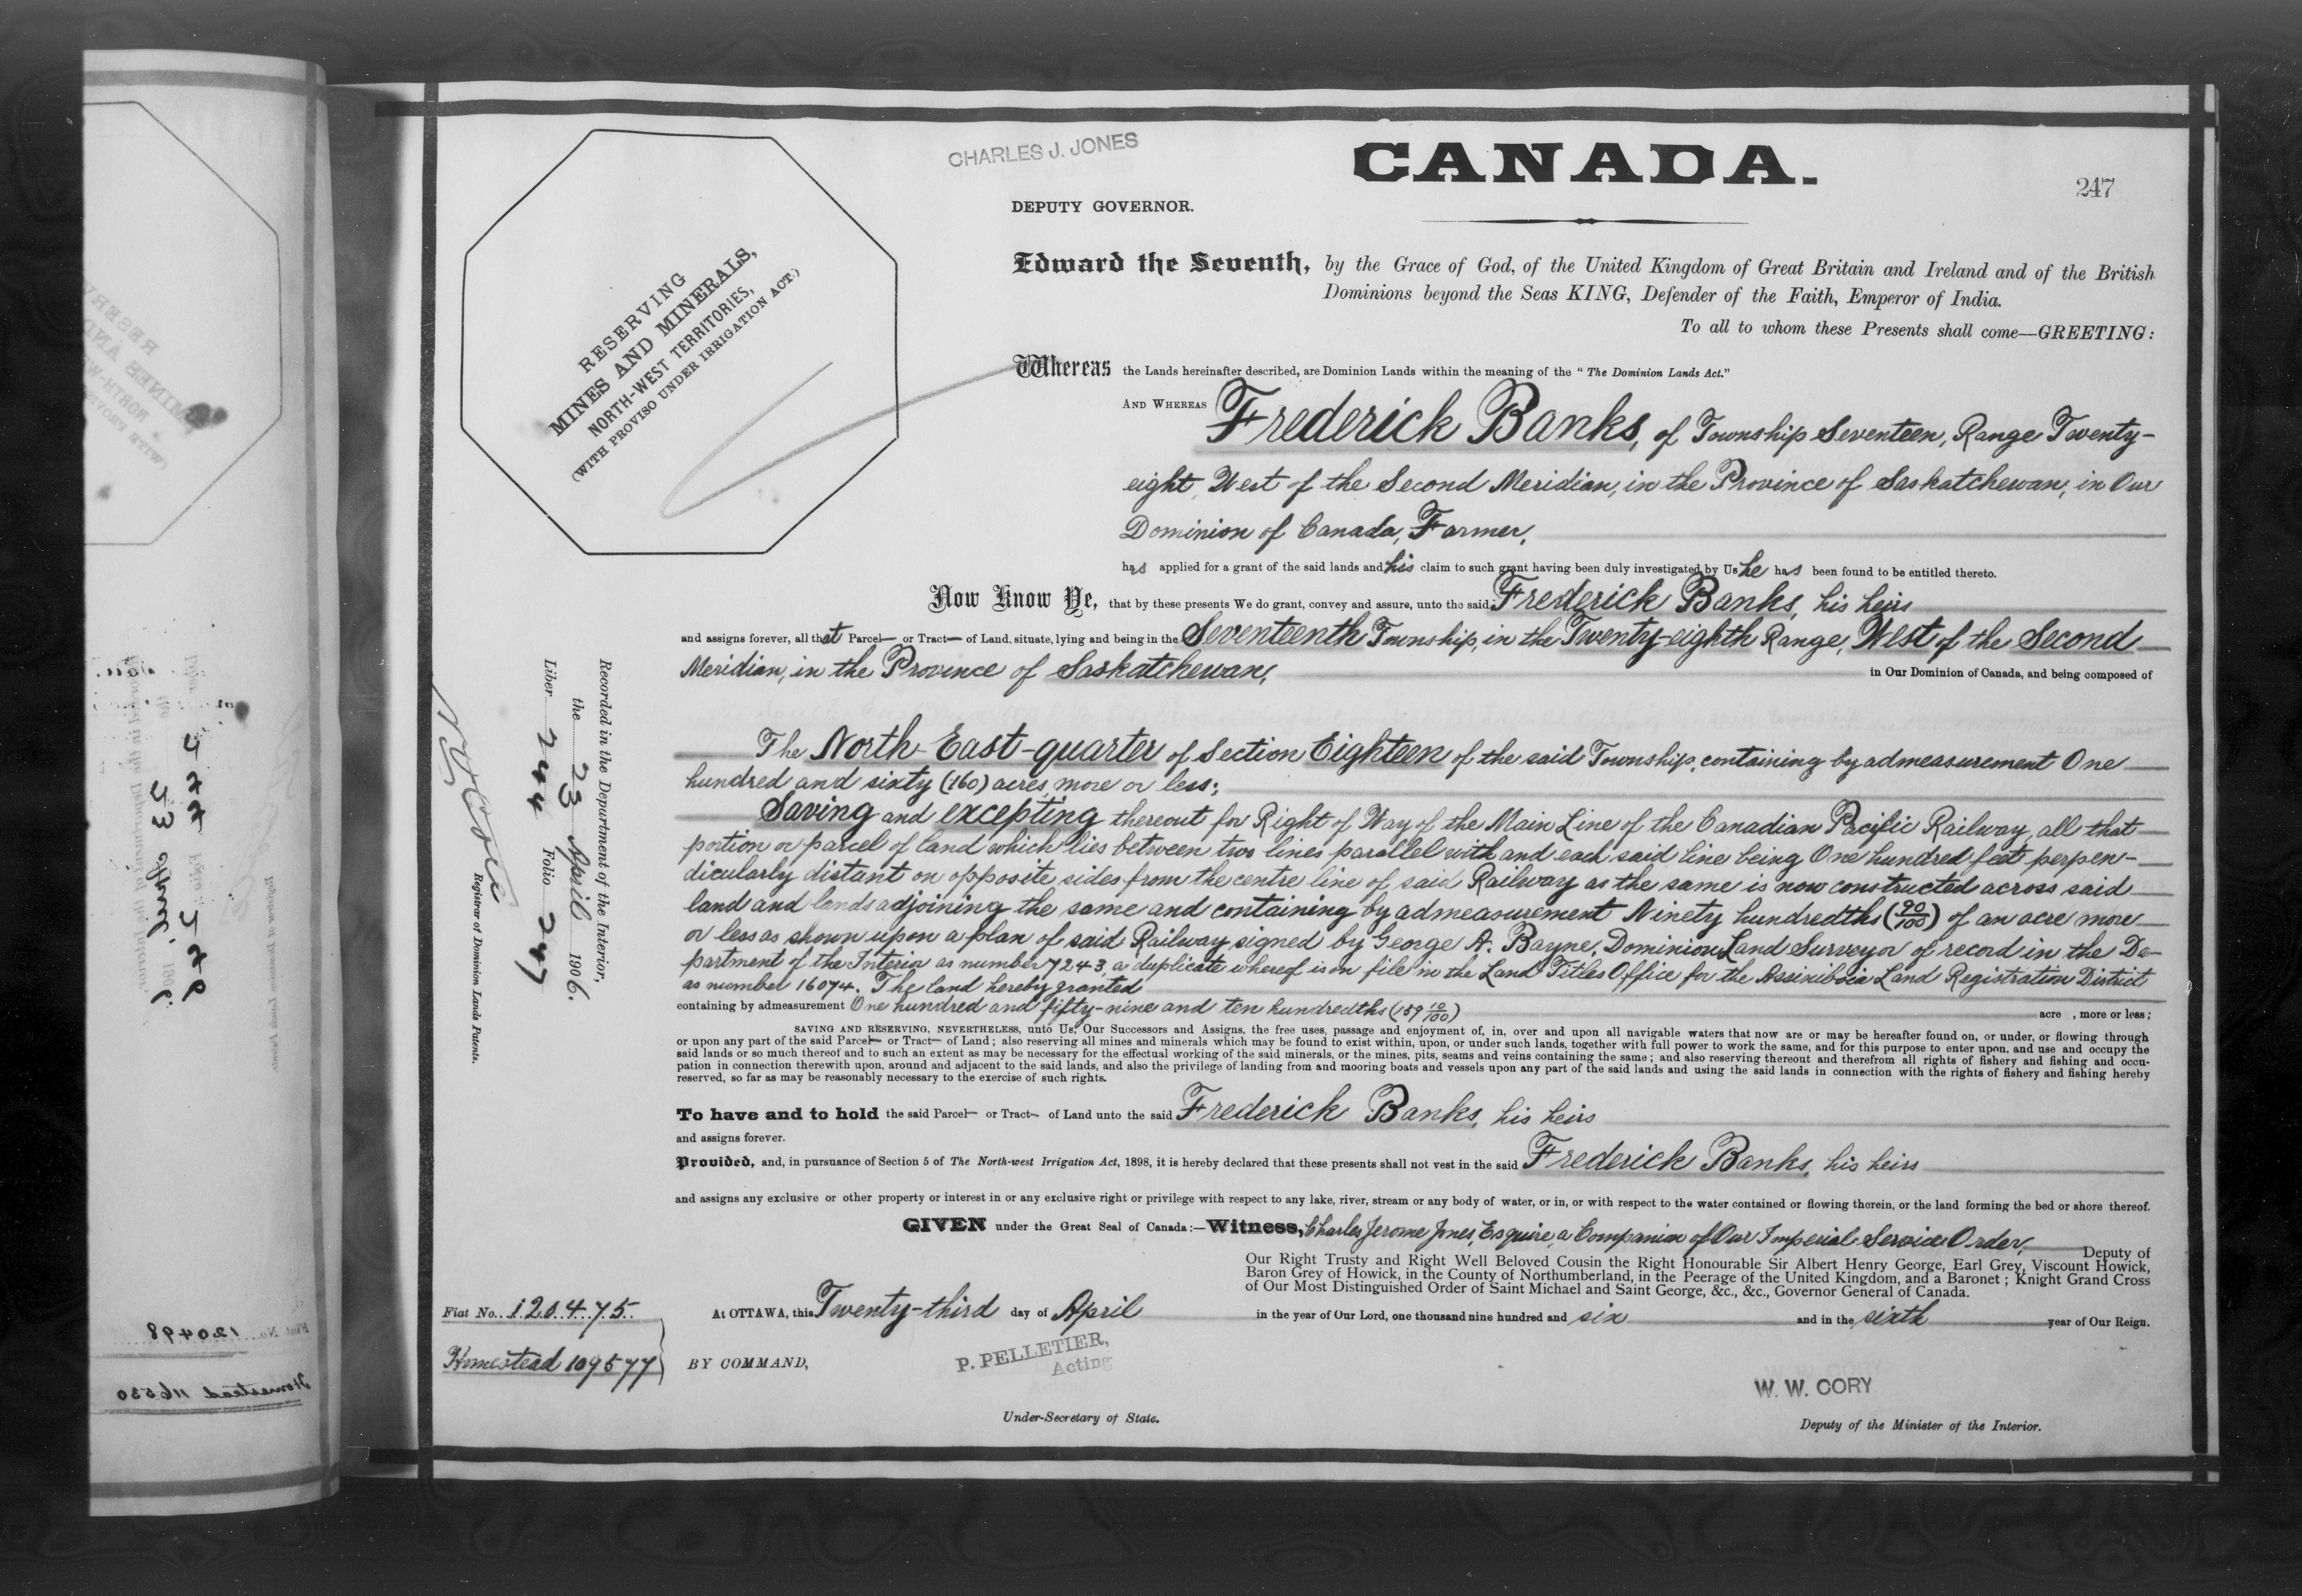 CHARLES J. JONES
CANADA.
247
DEPUTY GOVERNOR.
RESERVING
MINES AND MINERALS,
NORTH-WEST TERRITORIES,
(WITH PROVISO UNDER IRRIGATION ACT.)
Edward the Seventh, by the Grace of God, of the United Kingdom of Great Britain and Ireland and of the British
Dominions beyond the Seas KING, Defender of the Faith, Emperor of India.
To all to whom these Presents shall come—GREETING:
Whereas the Lands hereinafter described, are Dominion Lands within the meaning of the "The Dominion Lands Act."
AND WHEREAS Frederick Banks, of Township Seventeen, Range Twenty-
eight, West of the Second Meridian, in the Province of Saskatchewan, in Our
Dominion of Canada, Farmer,
has applied for a grant of the said lands and his claim to such grant having been duly investigated by Us he has been found to be entitled thereto.
Now Know Ye, that by these presents We do grant, convey and assure, unto the said Frederick Banks, his heirs
and assigns forever, all that Parcel— or Tract— of Land, situate, lying and being in the Seventeenth Township, in the Twenty-eighth Range, West of the Second
Meridian, in the Province of Saskatchewan, in Our Dominion of Canada, and being composed of
The North-East-quarter of Section Eighteen of the said Township, containing by admeasurement One
hundred and sixty (160) acres, more or less;
Saving and excepting thereout for Right of Way of the Main Line of the Canadian Pacific Railway, all that
portion or parcel of land which lies between two lines parallel with and each said line being One hundred feet perpen-
dicularly distant on opposite sides from the centre line of said Railway as the same is now constructed across said
land and lands adjoining the same and containing by admeasurement Ninety hundredths (90/100) of an acre more
or less as shown upon a plan of said Railway signed by George A. Bayne, Dominion Land Surveyor of record in the De-
partment of the Interior as number 7243, a duplicate whereof is on file in the Land Titles Office for the Assiniboia Land Registration District
as number 16074. The land hereby granted
containing by admeasurement One hundred and fifty-nine and ten hundredths (159 10/100) acre , more or less;
SAVING AND RESERVING, NEVERTHELESS, unto Us, Our Successors and Assigns, the free uses, passage and enjoyment of, in, over and upon all navigable waters that now are or may be hereafter found on, or under, or flowing through
or upon any part of the said Parcel— or Tract— of Land; also reserving all mines and minerals which may be found to exist within, upon, or under such lands, together with full power to work the same, and for this purpose to enter upon, and use and occupy the
said lands or so much thereof and to such an extent as may be necessary for the effectual working of the said minerals, or the mines, pits, seams and veins containing the same; and also reserving thereout and therefrom all rights of fishery and fishing and occu-
pation in connection therewith upon, around and adjacent to the said lands, and also the privilege of landing from and mooring boats and vessels upon any part of the said lands and using the said lands in connection with the rights of fishery and fishing hereby
reserved, so far as may be reasonably necessary to the exercise of such rights.
To have and to hold the said Parcel— or Tract— of Land unto the said Frederick Banks, his heirs
and assigns forever.
Provided, and, in pursuance of Section 5 of The North-west Irrigation Act, 1898, it is hereby declared that these presents shall not vest in the said Frederick Banks, his heirs
and assigns any exclusive or other property or interest in or any exclusive right or privilege with respect to any lake, river, stream or any body of water, or in, or with respect to the water contained or flowing therein, or the land forming the bed or shore thereof.
GIVEN under the Great Seal of Canada:—Witness, Charles Jerome Jones, Esquire, a Companion of Our Imperial Service Order, Deputy of
Our Right Trusty and Right Well Beloved Cousin the Right Honourable Sir Albert Henry George, Earl Grey, Viscount Howick,
Baron Grey of Howick, in the County of Northumberland, in the Peerage of the United Kingdom, and a Baronet; Knight Grand Cross
of Our Most Distinguished Order of Saint Michael and Saint George, &c., &c., Governor General of Canada.
At OTTAWA, this Twenty-third day of April in the year of Our Lord, one thousand nine hundred and six and in the sixth year of Our Reign.
BY COMMAND,
P. PELLETIER,
Acting
Under-Secretary of State.
W. W. CORY
Deputy of the Minister of the Interior.
Fiat No. 120475
Homestead 109577
Recorded in the Department of the Interior,
the 23 April 1906.
Liber 244 Folio 247
Registrar of Dominion Lands Patents.
Fiat No. 120498
Homestead 116530